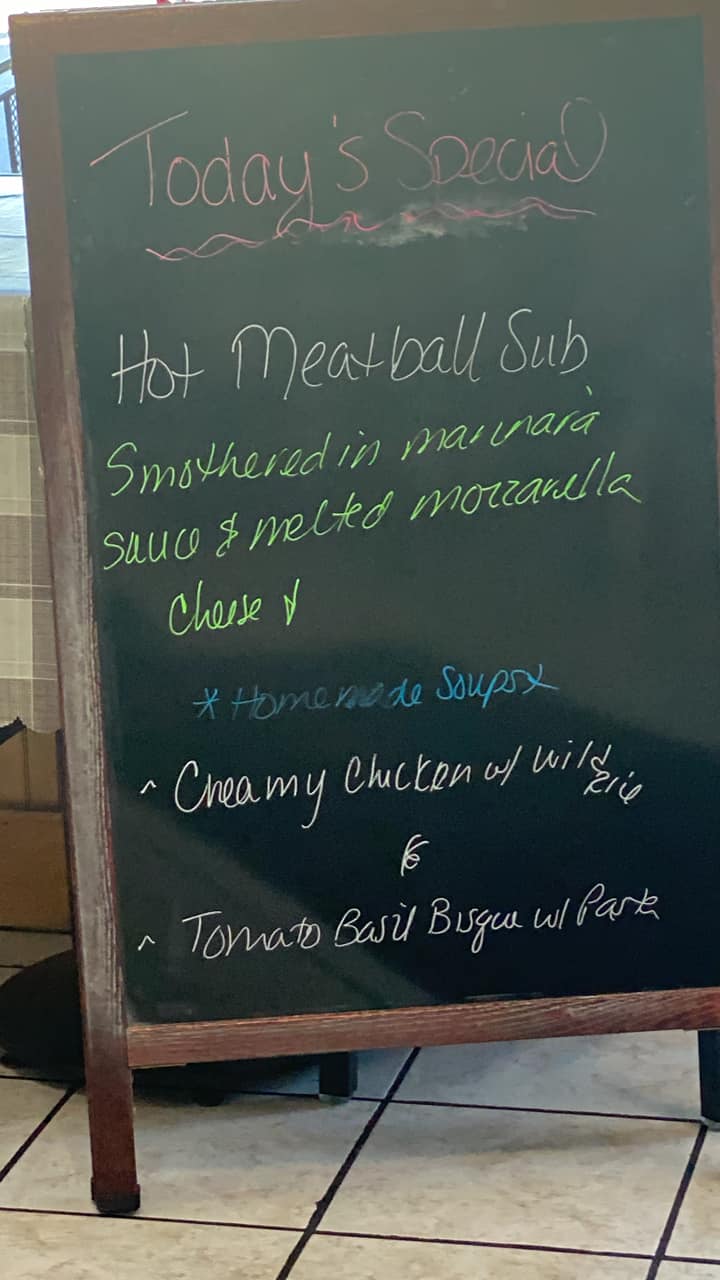 Today's Special
Hot Meatball Sub
Smothered in marinara
sauce & melted mozzarella
Cheese
*Homemade Soups*
^ Creamy Chicken w/ Wild
Rice
&
^ Tomato Basil Bisque w/